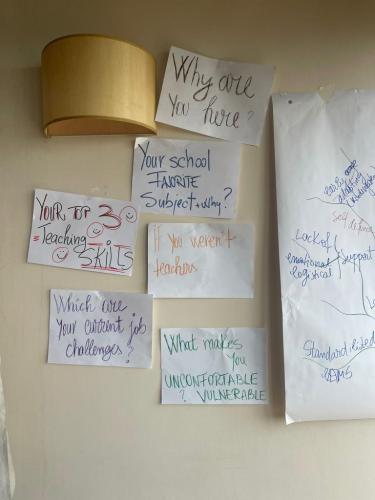 Why are
you here?
Your school
FAVORITE
Subject + Why?
YOUR TOP 3
Teaching
SKILLS
If you weren't
teachers
Which are
Your current job
challenges?
What makes
you
UNCONFORTABLE
? VULNERABLE
Lack of
emotional
logistical
support
Standardized